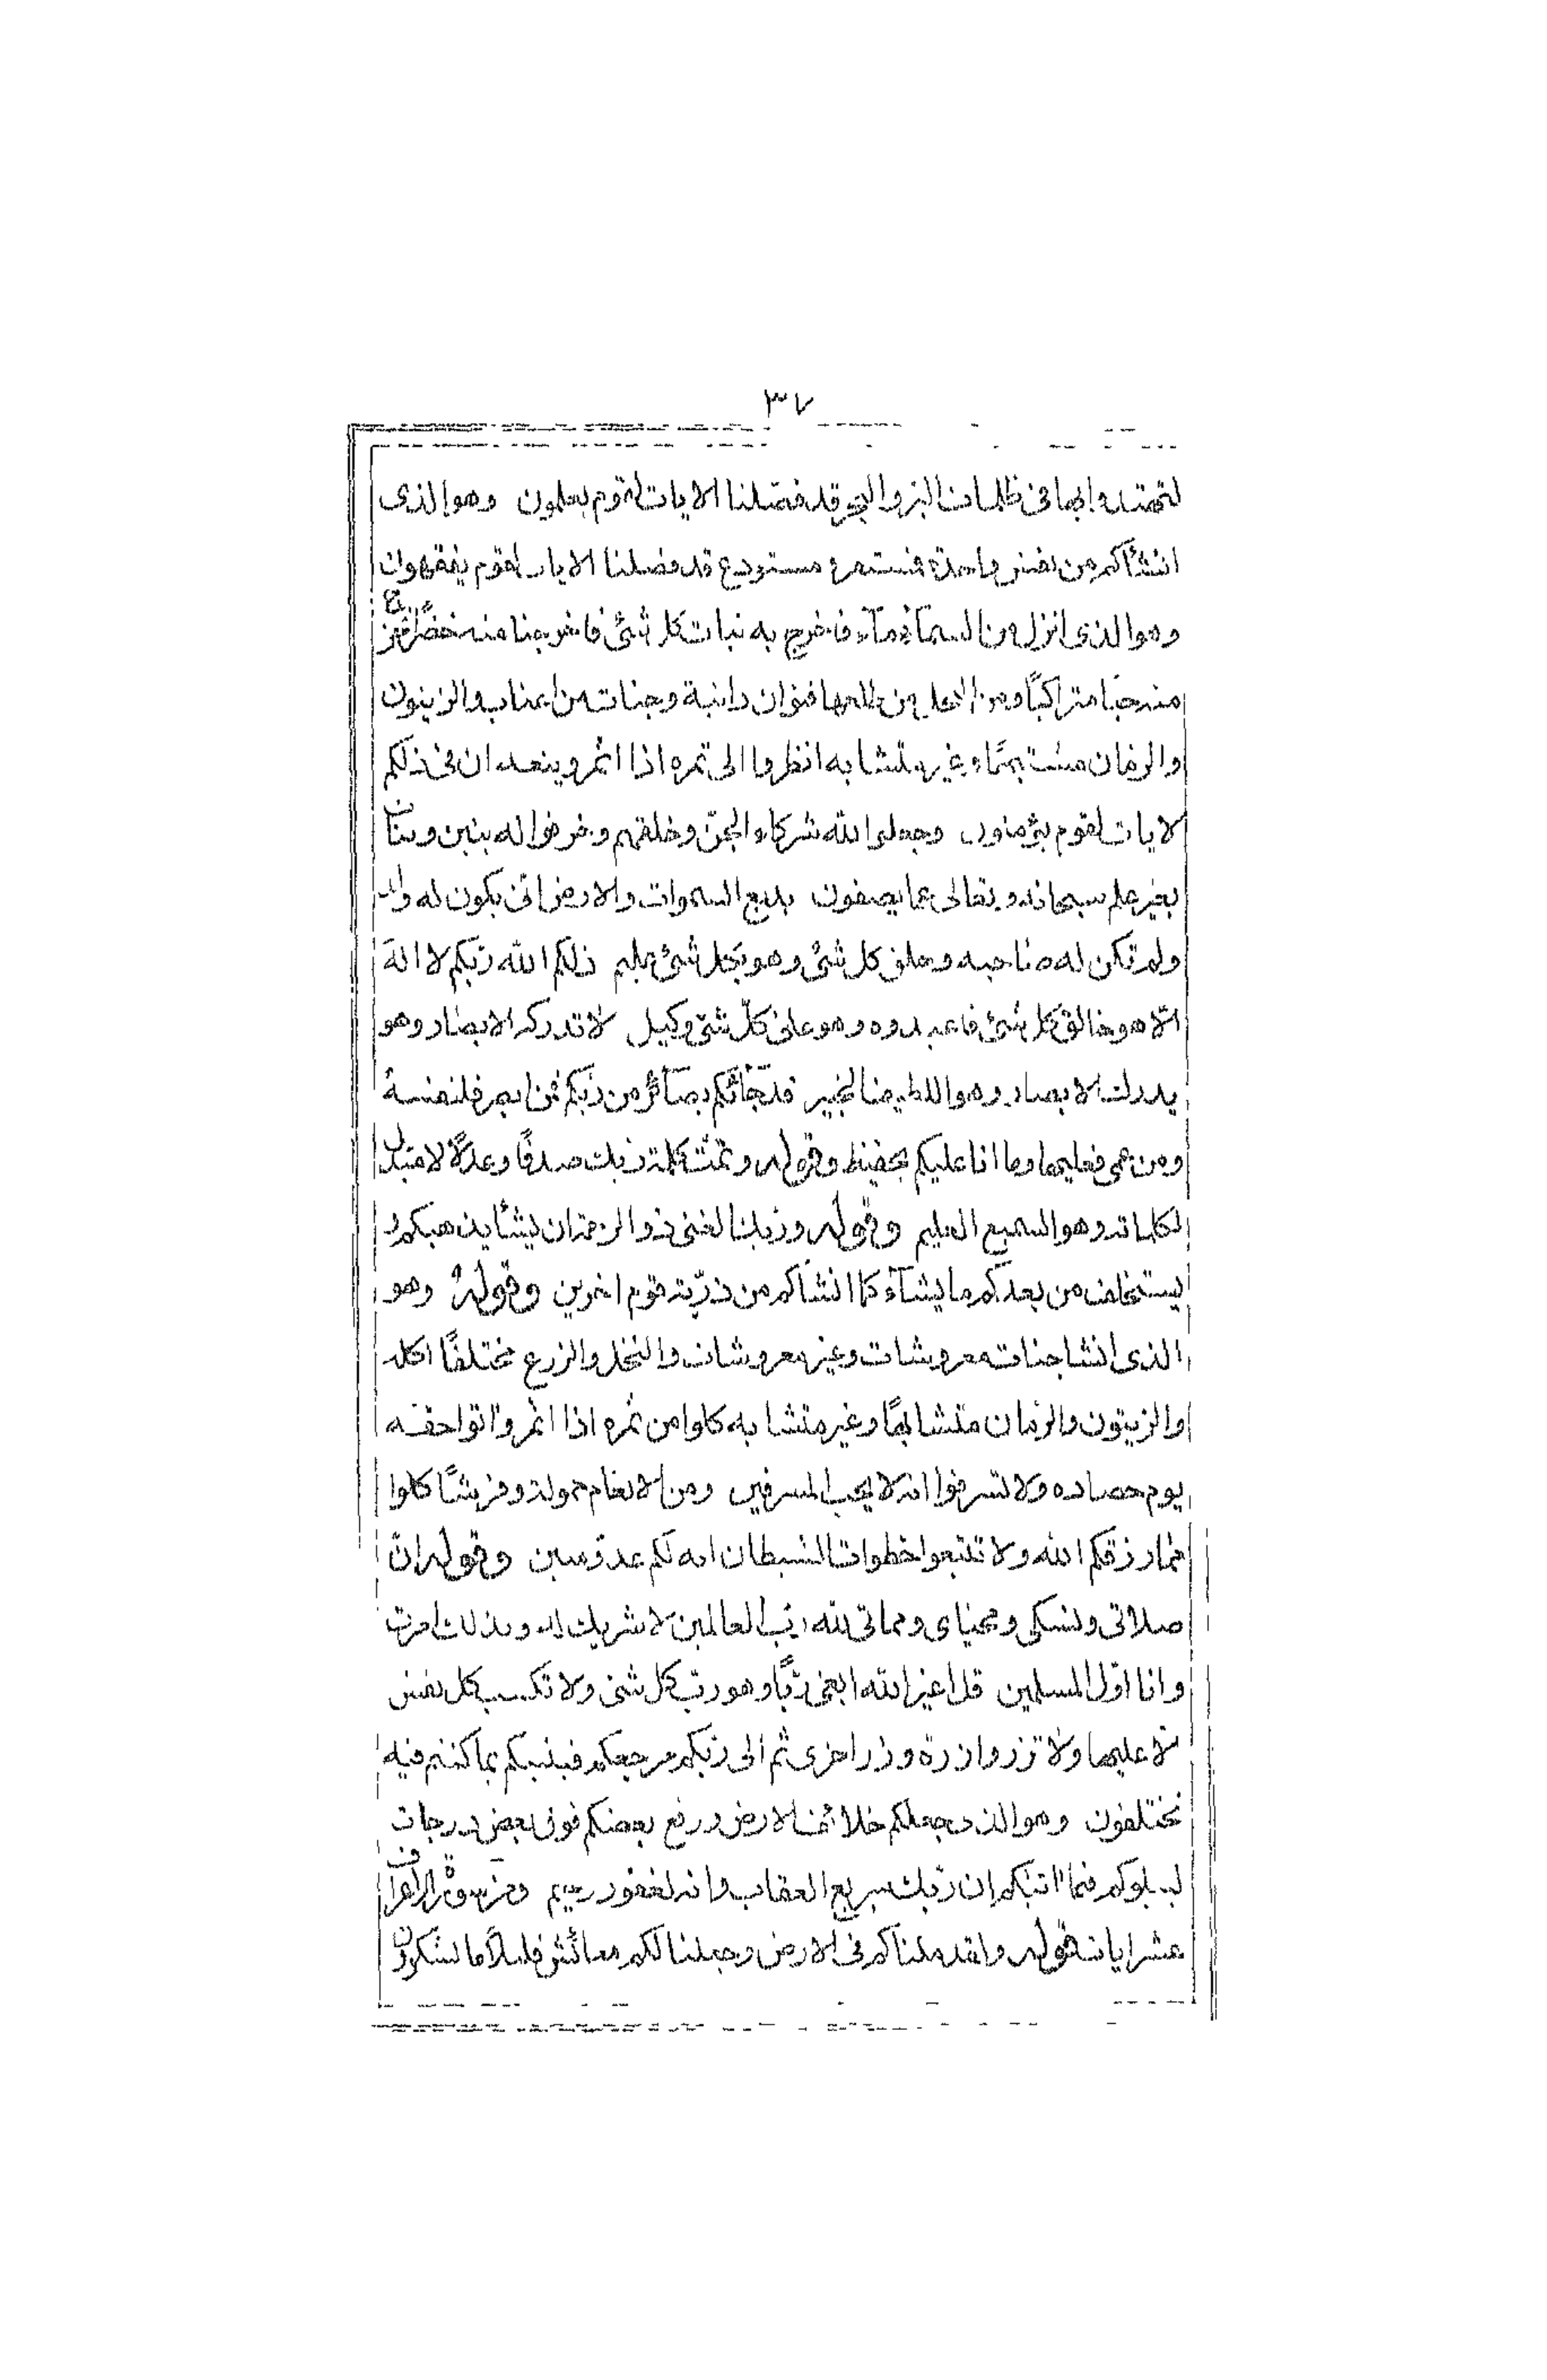 ٣٧
لتهتدوا بها فى ظلمات البر والبحر قد فصلنا الايات لقوم يعلمون وهو الذى
انشأكم من نفس واحدة فمستقر و مستودع قد فصلنا الايات لقوم يفقهون
وهو الذى انزل من السمآء مآء فاخرج به نبات كل شئ فاخرجنا منه خضرًا نخرج
منه حبًا متراكبًا ومن النخل من طلعها قنوان دانية وجنات من اعناب والزيتون
والرمان مشتبهًا وغير متشابه انظروا الى ثمره اذا اثمر وينعه ان فى ذلكم
لايات لقوم يؤمنون وجعلوا لله شركاء الجنّ وخلقهم وخرقوا له بنين وبنات
بغير علم سبحانه وتعالى عما يصفون بديع السموات والارض انى يكون له ولد
ولم تكن له صاحبه وخلق كل شئ وهو بكل شئ عليم ذلكم الله ربكم لا اله
الّا هو خالق كل شئ فاعبدوه وهو على كلّ شئ وكيل لا تدركه الابصار وهو
يدرك الابصار وهو اللطيف الخبير قد جآئكم بصآئر من ربكم فمن ابصر فلنفسه
ومن عمى فعليها وما انا عليكم بحفيظ وقوله وتمّت كلمة ربك صدقًا وعدلًا لا مبدل
لكلماته وهو السميع العليم وقوله وربك الغنى ذو الرحمة ان يشأ يذهبكم و
يستخلف من بعدكم ما يشآء كما انشأكم من ذرّية قوم اخرين وقوله وهو
الذى انشا جنات معروشات وغير معروشات والنخل والزرع مختلفًا اكله
والزيتون والرمان متشابهًا وغير متشابه كلوا من ثمره اذا اثمر واتوا حقه
يوم حصاده ولا تسرفوا انه لا يحب المسرفين ومن الانعام حمولة وفرشًا كلوا
مما رزقكم الله ولا تتبعوا خطوات الشيطان انه لكم عدو مبين وقوله انّ
صلاتى ونسكى ومحياى ومماتى لله رب العالمين لا شريك له وبذلك امرت
وانا اوّل المسلمين قل اغير الله ابغى ربًّا وهو رب كل شئ ولا تكسب كل نفس
الّا عليها ولا تزر وازرة وزر اخرى ثم الى ربكم مرجعكم فينبئكم بما كنتم فيه
تختلفون وهو الذى جعلكم خلائف الارض ورفع بعضكم فوق بعض درجات
ليبلوكم فيما اتيكم ان ربك سريع العقاب وانه لغفور رحيم ومن سورة الاعراف
عشر ايات قوله ولقد مكناكم فى الارض وجعلنا لكم معائش قليلًا ما تشكرون